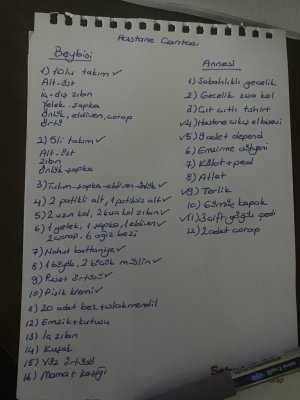 Hastane Çantası
Beybisi
1) 10lu takım ✓
Alt-üst
iç-dış zıbın
Yelek-şapka
önlük, eldiven, çorap
örtü
2) 5li takım ✓
Alt-üst
zıbın
önlük-şapka
3) Tulum-şapka-eldiven-önlük ✓
4) 2 patikli alt, 1 patiksiz alt ✓
5) 2 uzun kol, 2 kısa kol zıbın ✓
6) 1 yelek, 1 şapka, 1 eldiven ✓
2 çorap, 6 ağız bezi
7) Nohut battaniye ✓
8) 1 büyük, 2 küçük müslin ✓
9) Puset örtüsü ✓
10) Pişik kremi ✓
11) 20 adet bez + ıslak mendil
12) Emzik + kutusu
13) iç zıbın
14) Kuşak
15) Yüz örtüsü
16) Mama kaşığı
Annesi
1) Sabahlıklı gecelik
2) Gecelik kısa kol
3) Çıt çıtlı tshirt
✓4) Hastane çıkış elbisesi
✓5) 9 adet depend
6) Emzirme sütyeni
7) Külot + ped
8) Atlet
✓9) Terlik
10) Gümüş kapak
✓11) 3 çift göğüs pedi
12) 2 adet çorap